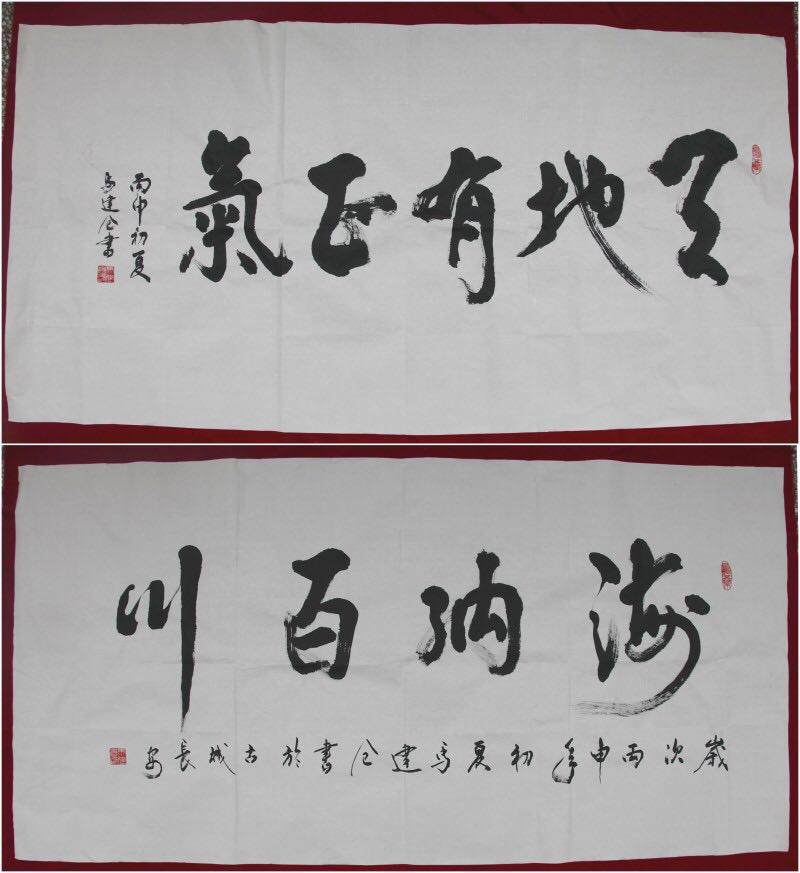 天地有正氣
丙申初夏
馬建仝書
海納百川
歲次丙申年初夏馬建仝書於古城長安